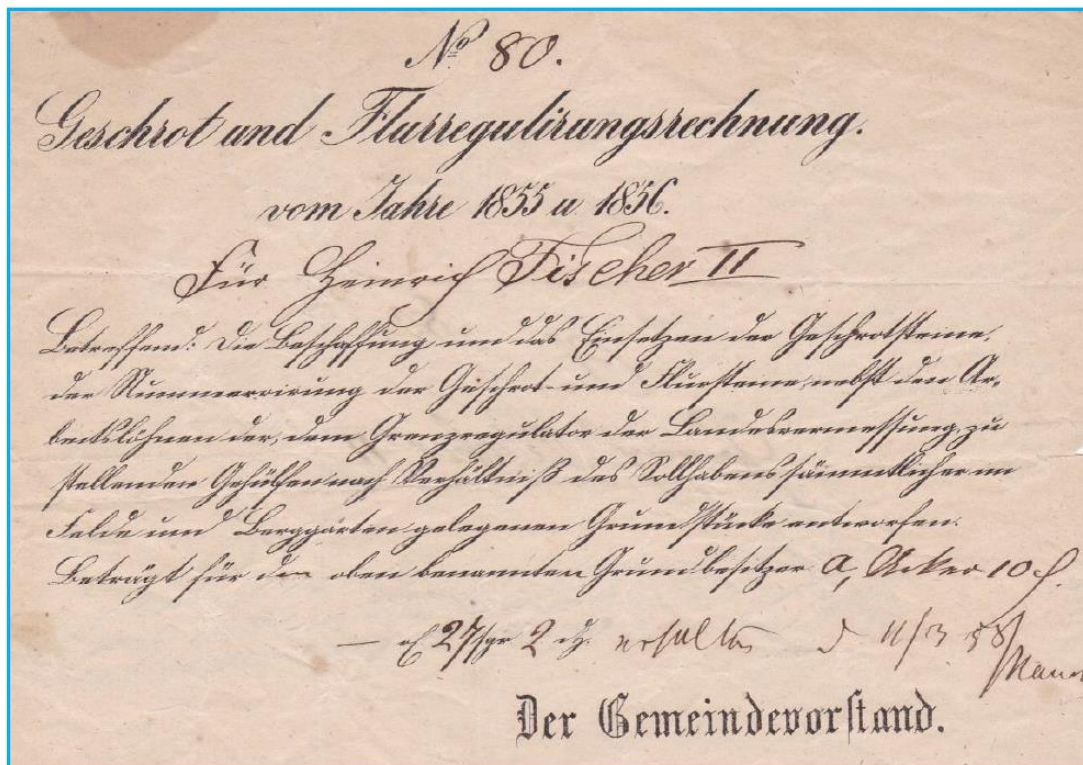 No 80.
Geschrot und Flurregulirungsrechnung.
vom Jahre 1855 u 1856.
Für Heinrich Fischer II
Betreffend: Die Beschaffung und das Einsetzen der Geschrotsteine,
der Nummerrirung der Geschrot- und Flursteine, nebst den Ar-
beitslöhnen der, dem Grenzregulator der Landesvermessung, zu
stellenden Gehülfen nach Verhältniß des Sollhabens sämmtlicher im
Felde und Berggärten gelegenen Grundstücke entworfen.
Beträgt für den oben benannten Grundbesitzer a, Acker 10
27 sgr 2 erhalten d 11/3 58
Der Gemeindevorstand.